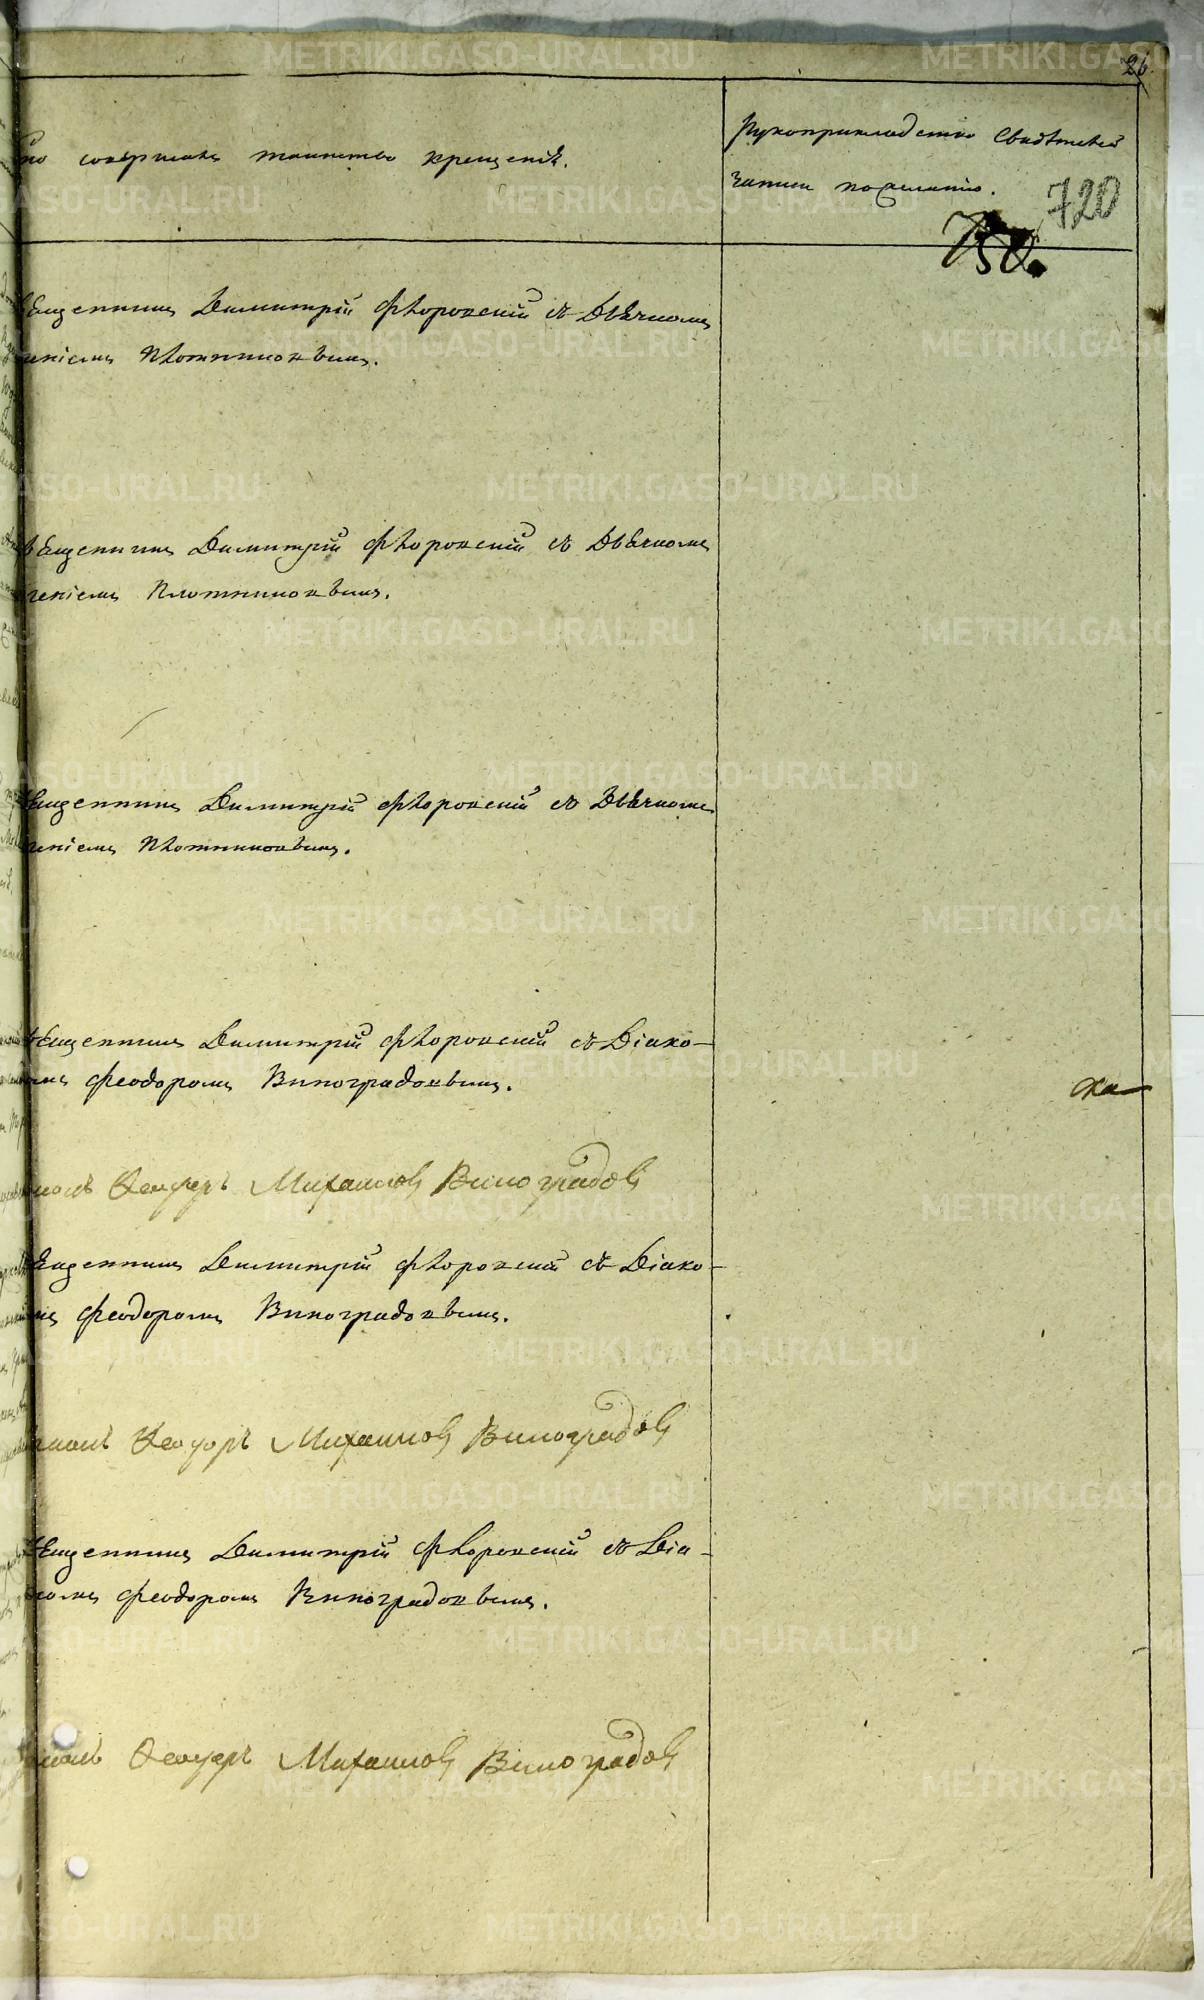 26.
то совершалъ таинство крещенія.
Рукоприкладство свидѣтелей
записи по желанію.
720
750.
вященникъ Димитрій Флоровскій съ Дьячкомъ
геніемъ Плотниковымъ.
вященникъ Димитрій Флоровскій съ Дьячкомъ
геніемъ Плотниковымъ.
вященникъ Димитрій Флоровскій съ Дьячкомъ
геніемъ Плотниковымъ.
вященникъ Димитрій Флоровскій съ Діако-
номъ Феодоромъ Виноградовымъ.
ка
Ѳеодоръ Михаиловъ Виноградовъ
вященникъ Димитрій Флоровскій съ Діако-
номъ Феодоромъ Виноградовымъ.
Ѳеодоръ Михаиловъ Виноградовъ
вященникъ Димитрій Флоровскій съ Діа-
кономъ Феодоромъ Виноградовымъ.
Ѳеодоръ Михаиловъ Виноградовъ
METRIKI.GASO-URAL.RU